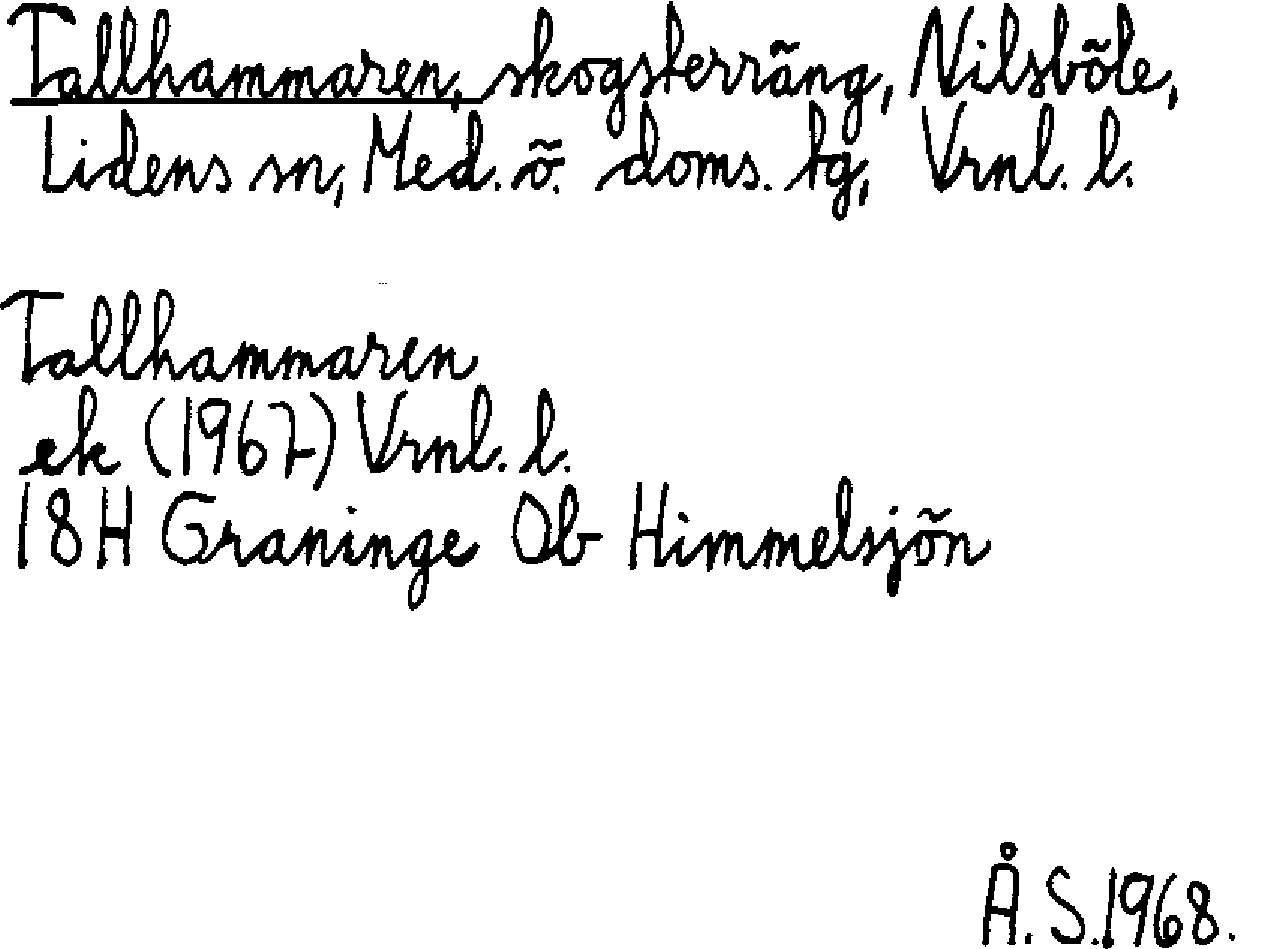 Tallhammaren, skogsterräng, Nilsböle,
Lidens sn, Med. ö. doms. tg, Vrnl. l.
Tallhammaren
ek (1967) Vrnl. l.
18H Graninge Ob Himmelsjön
Å. S. 1968.